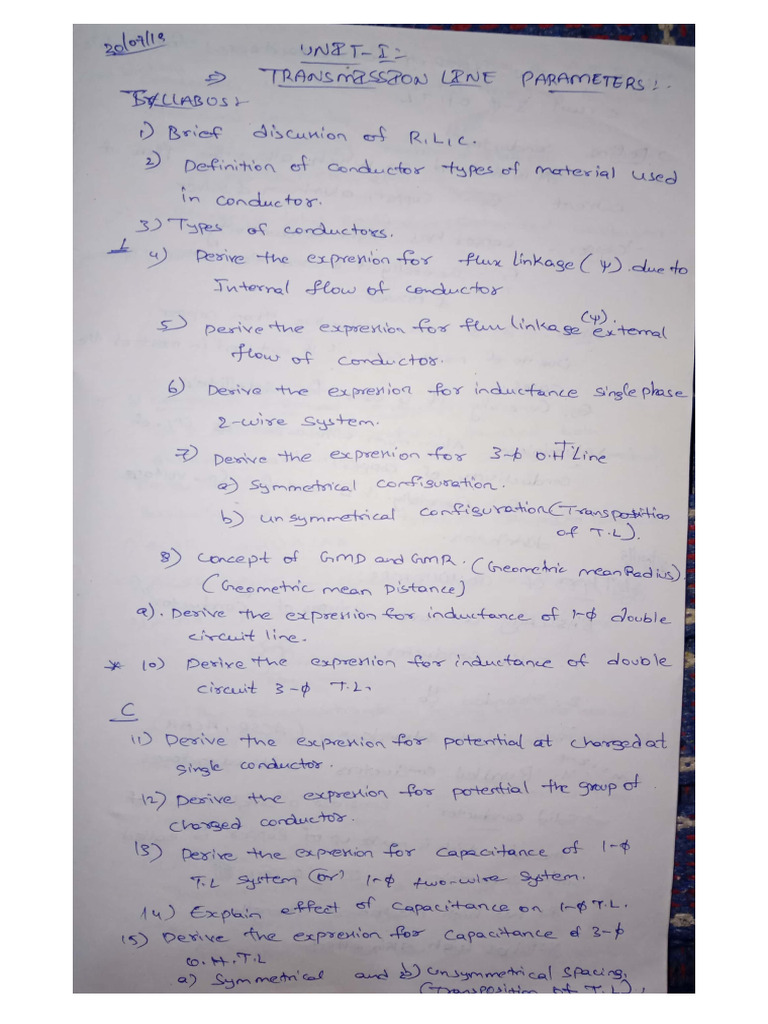 30/07/18
UNIT-I:-
⇒ TRANSMISSION LINE PARAMETERS:-
SYLLABUS:-
1) Brief discussion of R,L,C.
2) Definition of conductor types of material used
in conductor.
3) Types of conductors.
L 4) Derive the expression for flux linkage (Ψ) due to
Internal flow of conductor
5) Derive the expression for flux linkage (Ψ). external
flow of conductor.
6) Derive the expression for inductance single phase
2-wire system.
7) Derive the expression for 3-ϕ O.H T.Line
a) symmetrical configuration.
b) unsymmetrical configuration (Transposition
of T.L).
8) concept of GMD and GMR. (Geometric mean Radius).
(Geometric mean Distance)
9). Derive the expression for inductance of 1-ϕ double
circuit line.
* 10) Derive the expression for inductance of double
circuit 3-ϕ T.L.
C
11) Derive the expression for potential at charged at
single conductor.
12) Derive the expression for potential the group of
charged conductor.
13) Derive the expression for capacitance of 1-ϕ
T.L system (or) 1-ϕ two-wire system.
14) Explain effect of capacitance on 1-ϕ T.L.
15) Derive the expression for capacitance of 3-ϕ
O.H.T.L
a) symmetrical and b) unsymmetrical spacing.
(Transposition of T.L).